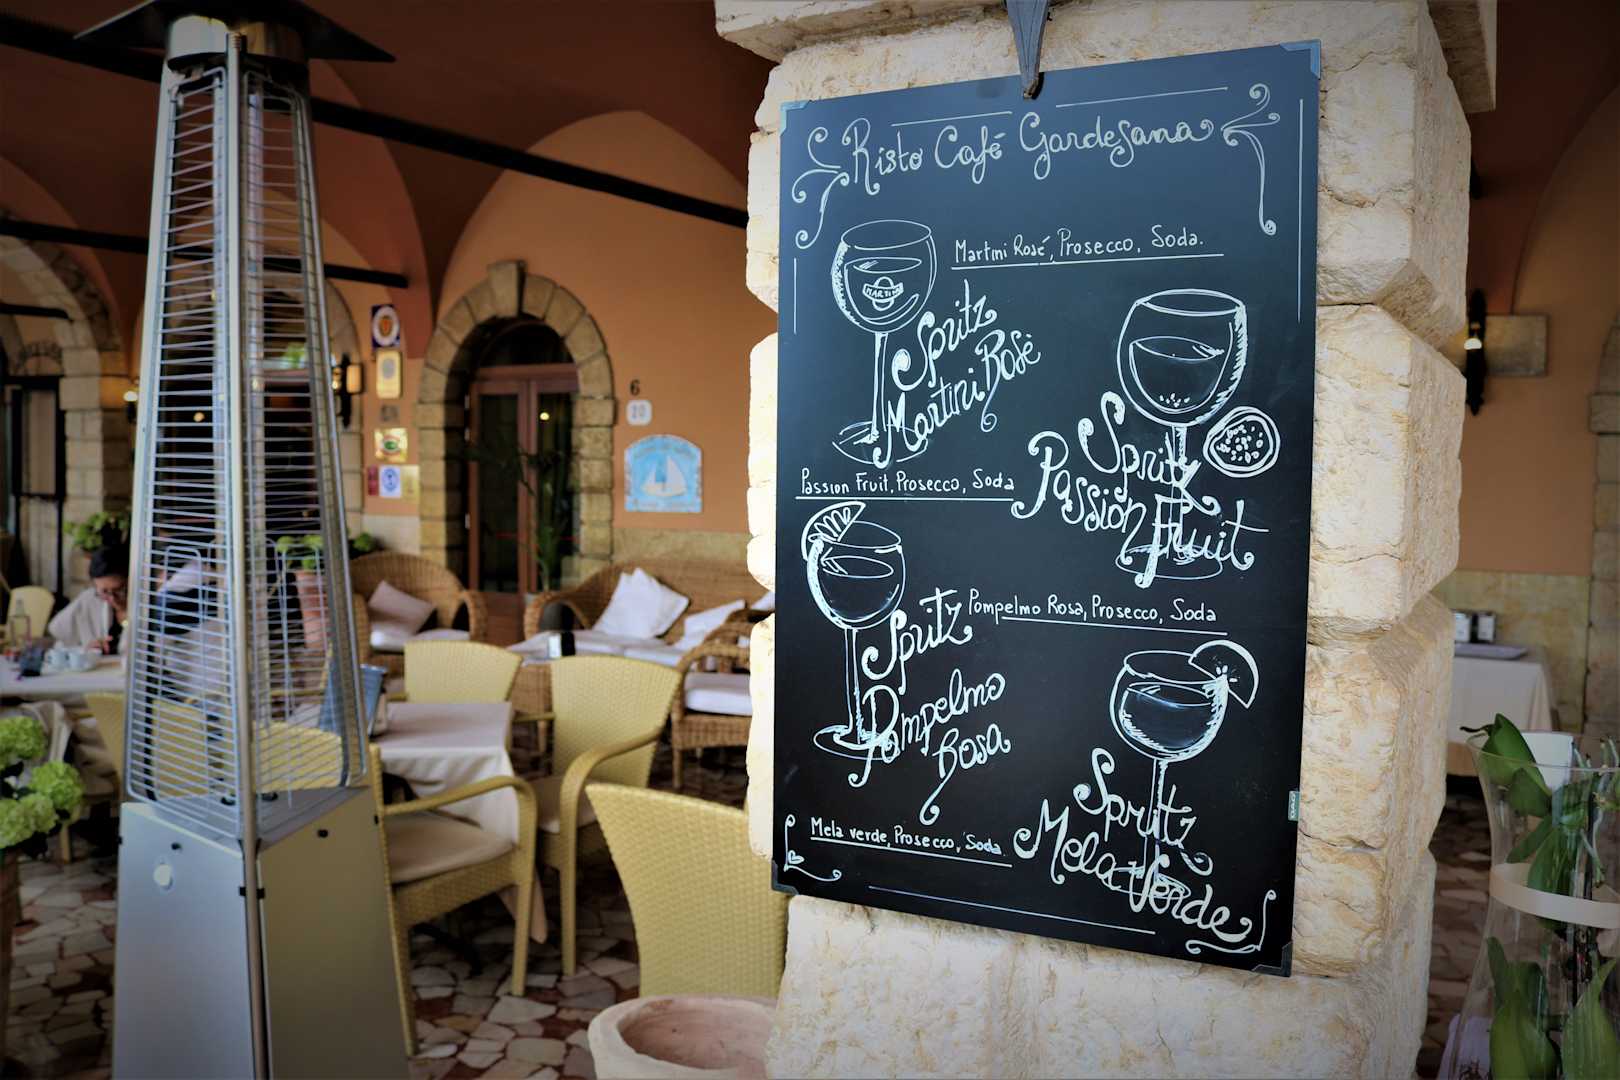 Risto Café Gardesana
Martini Rosé, Prosecco, Soda.
MARTINI
Spritz
Martini Rosé
Spritz
Passion Fruit
Passion Fruit, Prosecco, Soda
Spritz
Pompelmo
Rosa
Pompelmo Rosa, Prosecco, Soda
Spritz
Mela Verde
Mela verde, Prosecco, Soda
6
20